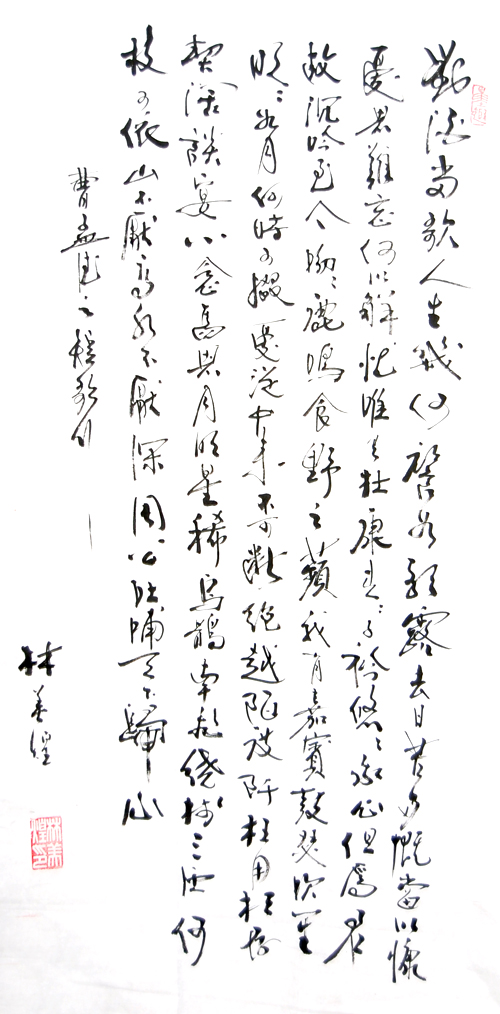 對酒當歌人生幾何譬如朝露去日苦多慨當以慷
憂思難忘何以解忧唯有杜康青々子衿悠々我心但爲君
故沉吟至今呦々鹿鳴食野之蘋我有嘉賓鼓瑟吹笙
明々如月何時可掇憂從中來不可斷絕越陌度阡枉用相存
契闊談宴心念舊恩月明星稀烏鵲南飛繞樹三匝何
枝可依山不厭高水不厭深周公吐哺天下歸心
曹孟德之短歌行
林美煌
林美煌印